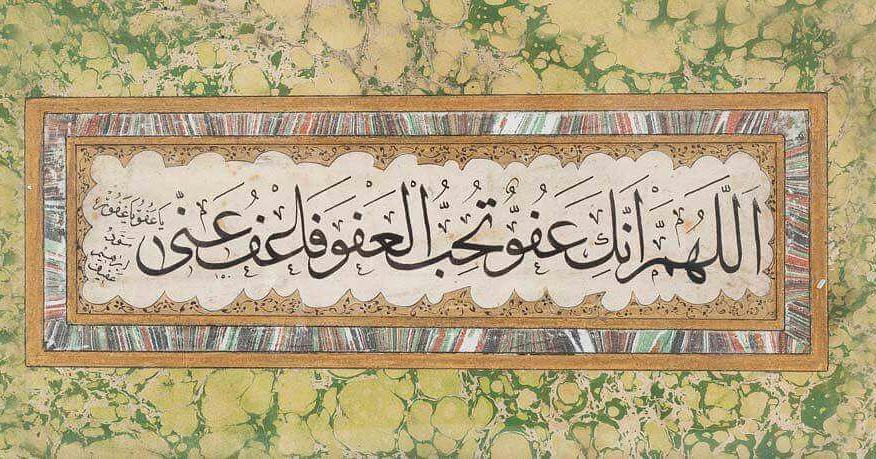 اَللّٰهُمَّ اِنَّكَ عَفُوٌّ تُحِبُّ الْعَفْوَ فَاعْفُ عَنّٖي
يا عفو يا غفور